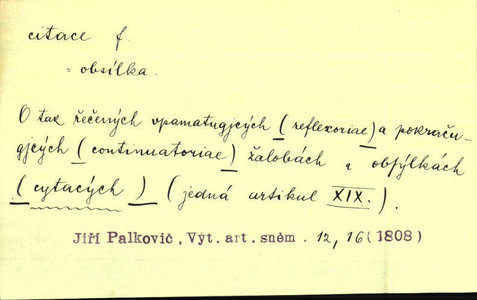 citace f.
= obsílka.
O tak řečených vpamatugjcých (reflexoriae) a pokraču-
gjcých (continuatoriae) žalobách a obsýlkách
(cytacých) (jedná artikul XIX.).
Jiří Palkovič, Výt. art. sněm. 12, 16 (1808)